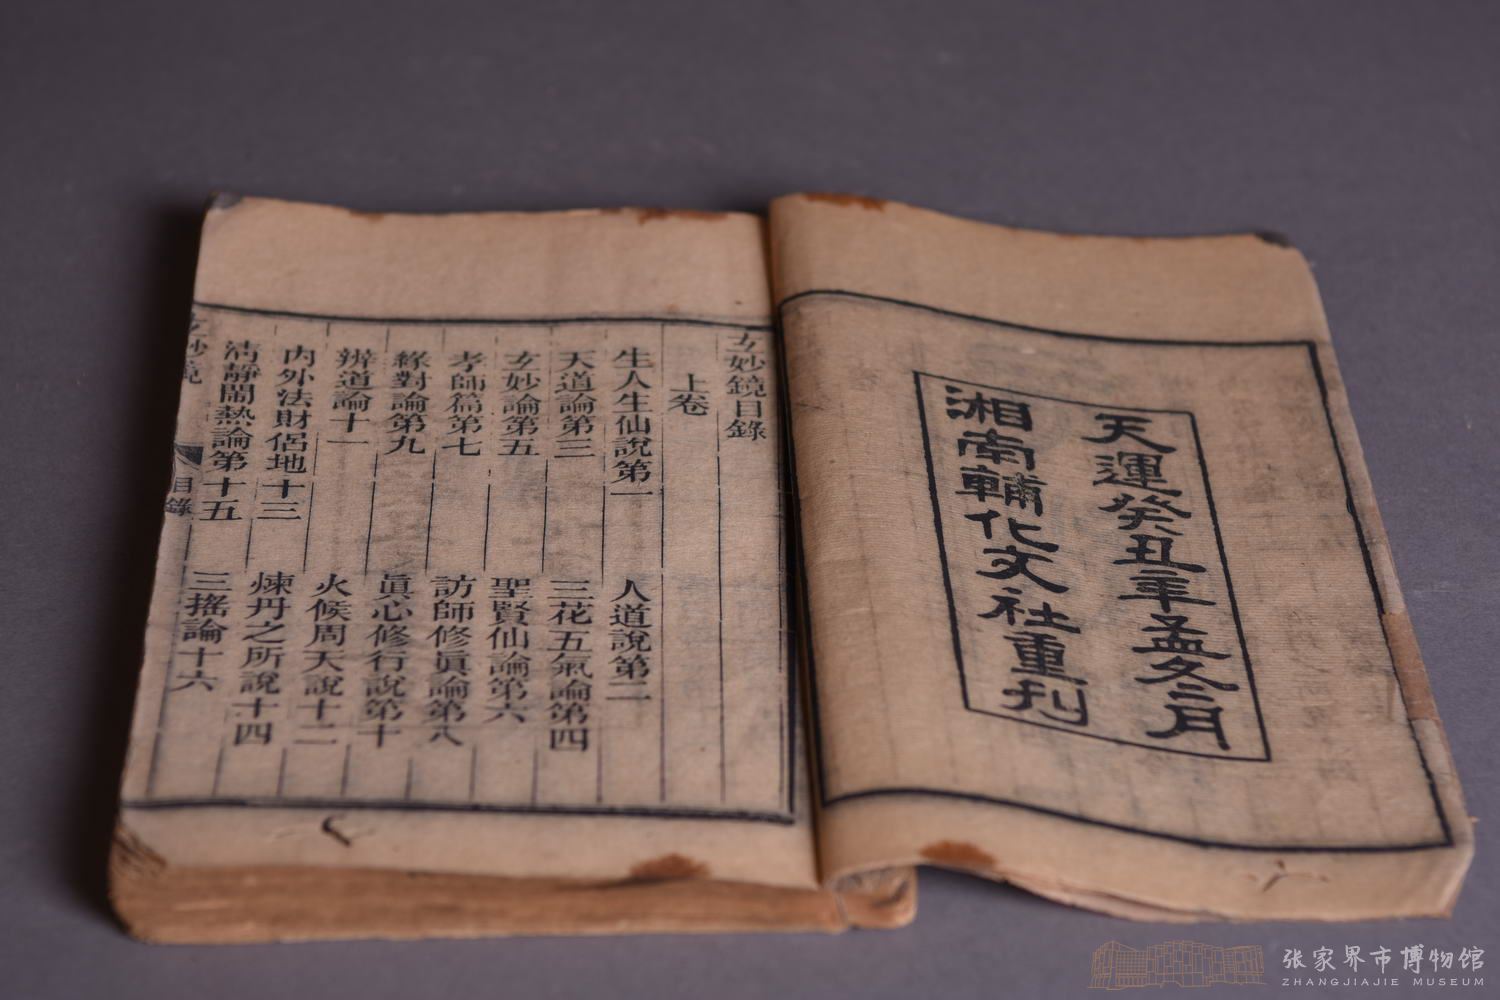 天運癸丑年孟冬之月
湘南輔化文社重刊
玄妙鏡目錄
上卷
生人生仙說第一 人道說第二
天道論第三 三花五氣論第四
玄妙論第五 聖賢仙論第六
孝師篇第七 訪師修眞論第八
緣對論第九 眞心修行說第十
辨道論十一 火候周天說十二
內外法財侶地十三 煉丹之所說十四
清靜鬧熱論第十五 三搖論十六
玄妙鏡 目錄
张家界市博物馆
ZHANGJIAJIE MUSEUM